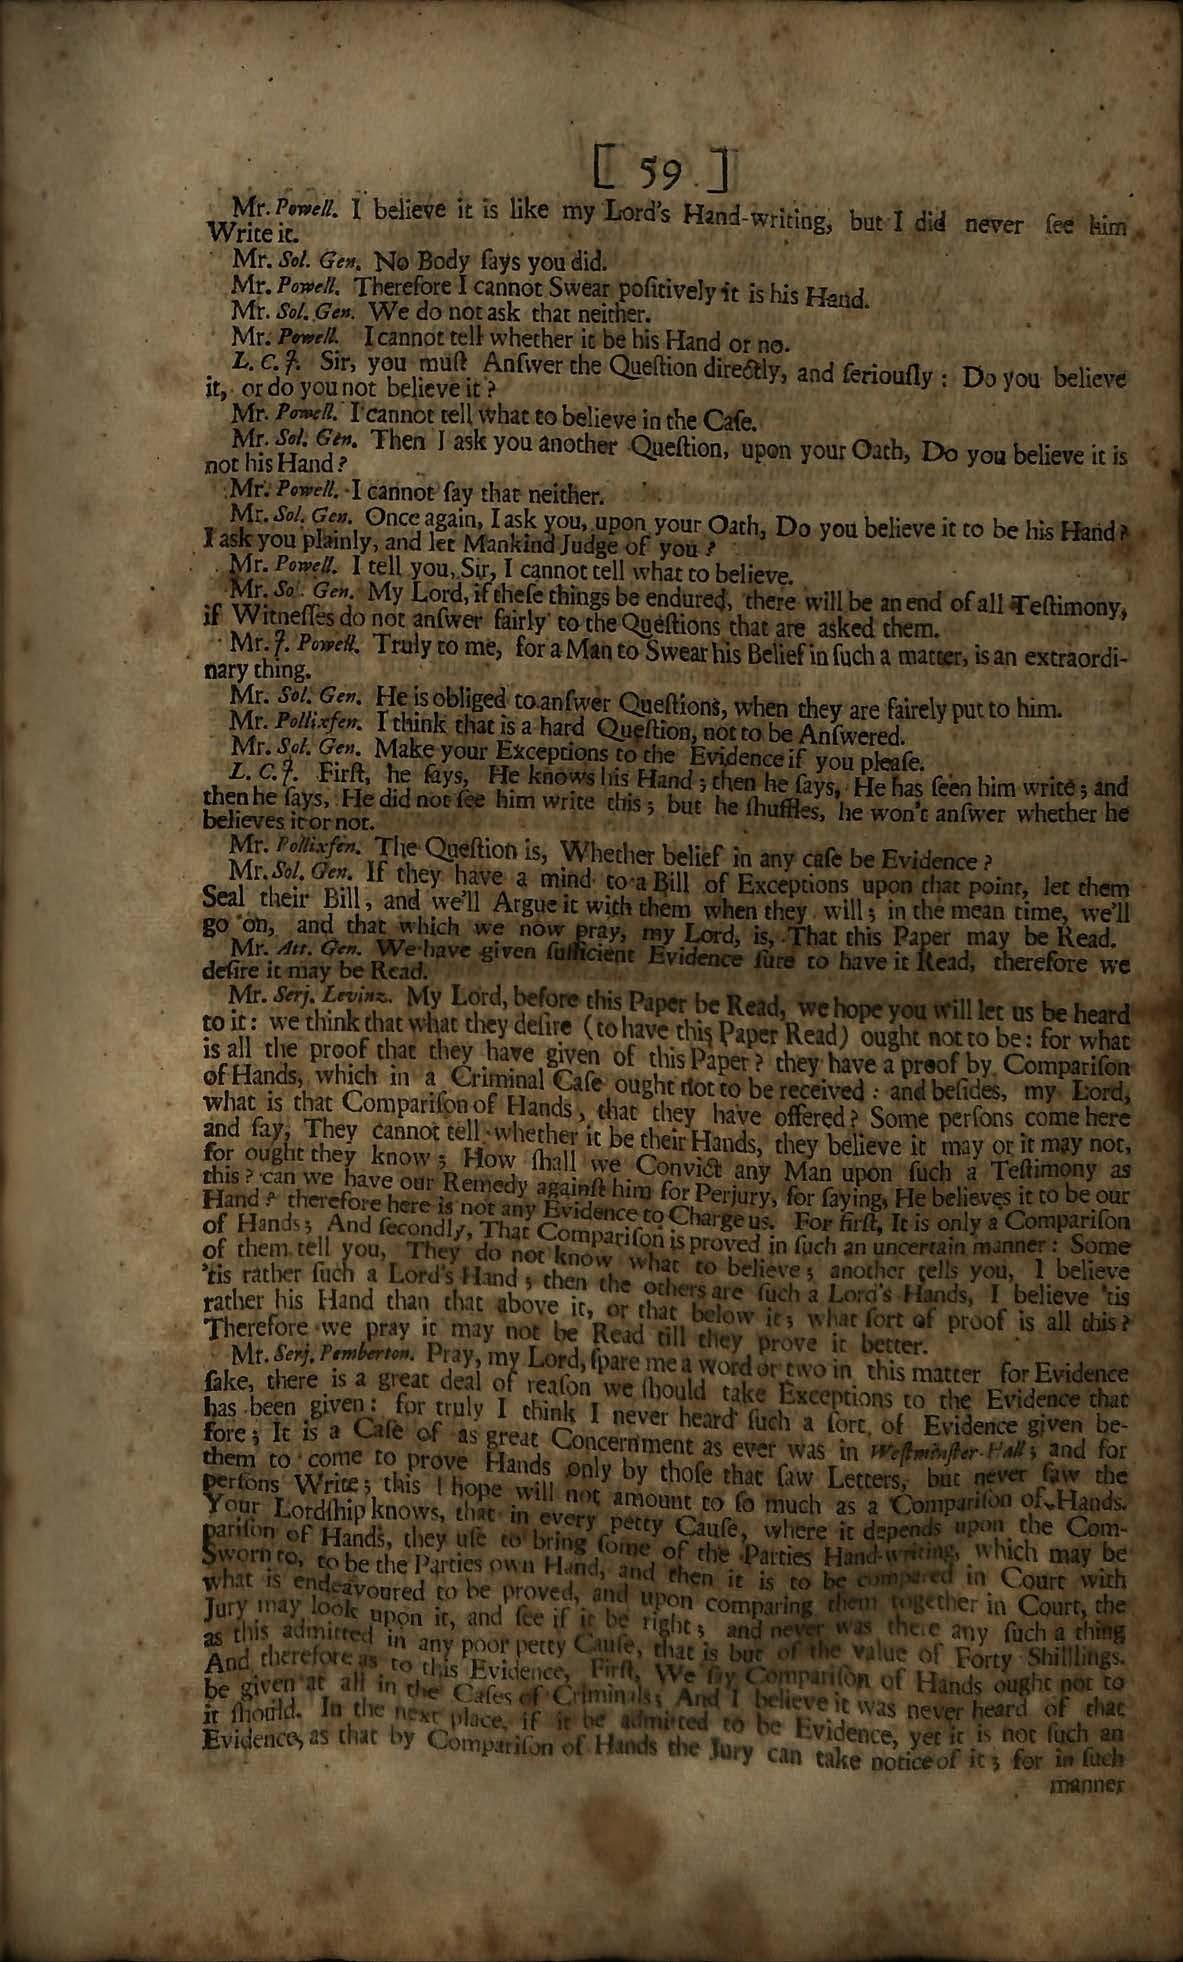 [ 59 ]
Mr. Powell. I believe it is like my Lord's Hand-writing, but I did never ſee him
Write it.
Mr. Sol. Gen. No Body ſays you did.
Mr. Powell. Therefore I cannot Swear poſitively it is his Hand.
Mr. Sol. Gen. We do not ask that neither.
Mr. Powell. I cannot tell whether it be his Hand or no.
L. C. J. Sir, you muſt Anſwer the Queſtion directly, and ſeriouſly: Do you believe
it, or do you not believe it?
Mr. Powell. I cannot tell what to believe in the Caſe.
Mr. Sol. Gen. Then I ask you another Queſtion, upon your Oath, Do you believe it is
not his Hand?
Mr. Powell. I cannot ſay that neither.
Mr. Sol. Gen. Once again, I ask you, upon your Oath, Do you believe it to be his Hand?
I ask you plainly, and let Mankind Judge of you?
Mr. Powell. I tell you, Sir, I cannot tell what to believe.
Mr. Sol. Gen. My Lord, if theſe things be endured, there will be an end of all Teſtimony,
if Witneſſes do not anſwer fairly to the Queſtions that are asked them.
Mr. J. Powell. Truly to me, for a Man to Swear his Belief in ſuch a matter, is an extraordi-
nary thing.
Mr. Sol. Gen. He is obliged to anſwer Queſtions, when they are fairely put to him.
Mr. Pollixfen. I think that is a hard Queſtion, not to be Anſwered.
Mr. Sol. Gen. Make your Exceptions to the Evidence if you pleaſe.
L. C. J. Firſt, he ſays, He knows his Hand; then he ſays, He has ſeen him write; and
then he ſays, He did not ſee him write this; but he ſhuffles, he won't anſwer whether he
believes it or not.
Mr. Pollixfen. The Queſtion is, Whether belief in any caſe be Evidence?
Mr. Sol. Gen. If they have a mind to a Bill of Exceptions upon that point, let them
Seal their Bill, and we'll Argue it with them when they will; in the mean time, we'll
go on, and that which we now pray, my Lord, is, That this Paper may be Read.
Mr. Att. Gen. We have given ſufficient Evidence ſure to have it Read, therefore we
deſire it may be Read.
Mr. Serj. Levinz. My Lord, before this Paper be Read, we hope you will let us be heard
to it: we think that what they deſire (to have this Paper Read) ought not to be: for what
is all the proof that they have given of this Paper? they have a proof by Compariſon
of Hands, which in a Criminal Caſe ought not to be received: and beſides, my Lord,
what is that Compariſon of Hands, that they have offered? Some perſons come here
and ſay, They cannot tell whether it be their Hands, they believe it may or it may not,
for ought they know; How ſhall we Convict any Man upon ſuch a Teſtimony as
this? can we have our Remedy againſt him for Perjury, for ſaying, He believes it to be our
Hand? therefore here is not any Evidence to Charge us. For firſt, It is only a Compariſon
of Hands; And ſecondly, That Compariſon is proved in ſuch an uncertain manner: Some
of them tell you, They do not know what to believe; another tells you, I believe
'tis rather ſuch a Lord's Hand; then the others are ſuch a Lord's Hands, I believe 'tis
rather his Hand than that above it, or that below it; what ſort of proof is all this?
Therefore we pray it may not be Read till they prove it better.
Mr. Serj. Pemberton. Pray, my Lord, ſpare me a word or two in this matter for Evidence
ſake, there is a great deal of reaſon we ſhould take Exceptions to the Evidence that
has been given: for truly I think I never heard ſuch a ſort of Evidence given be-
fore; It is a Caſe of as great Concernment as ever was in Weſtminſter-Hall; and for
them to come to prove Hands only by thoſe that ſaw Letters, but never ſaw the
perſons Write; this I hope will not amount to ſo much as a Compariſon of Hands.
Your Lordſhip knows, that in every petty Cauſe, where it depends upon the Com-
pariſon of Hands, they uſe to bring ſome of the Parties Hand-writing, which may be
Sworn to, to be the Parties own Hand, and then it is to be compared in Court with
what is endeavoured to be proved, and upon comparing them together in Court, the
Jury may look upon it, and ſee if it be right; and never was there any ſuch a thing
as this admitted in any poor petty Cauſe, that is but of the value of Forty Shilllings.
And therefore as to this Evidence, Firſt, We ſay Compariſon of Hands ought not to
be given at all in the Caſes of Criminals; And I believe it was never heard of that
it ſhould. In the next place, if it be admitted to be Evidence, yet it is not ſuch an
Evidence, as that by Compariſon of Hands the Jury can take notice of it; for in ſuch
manner